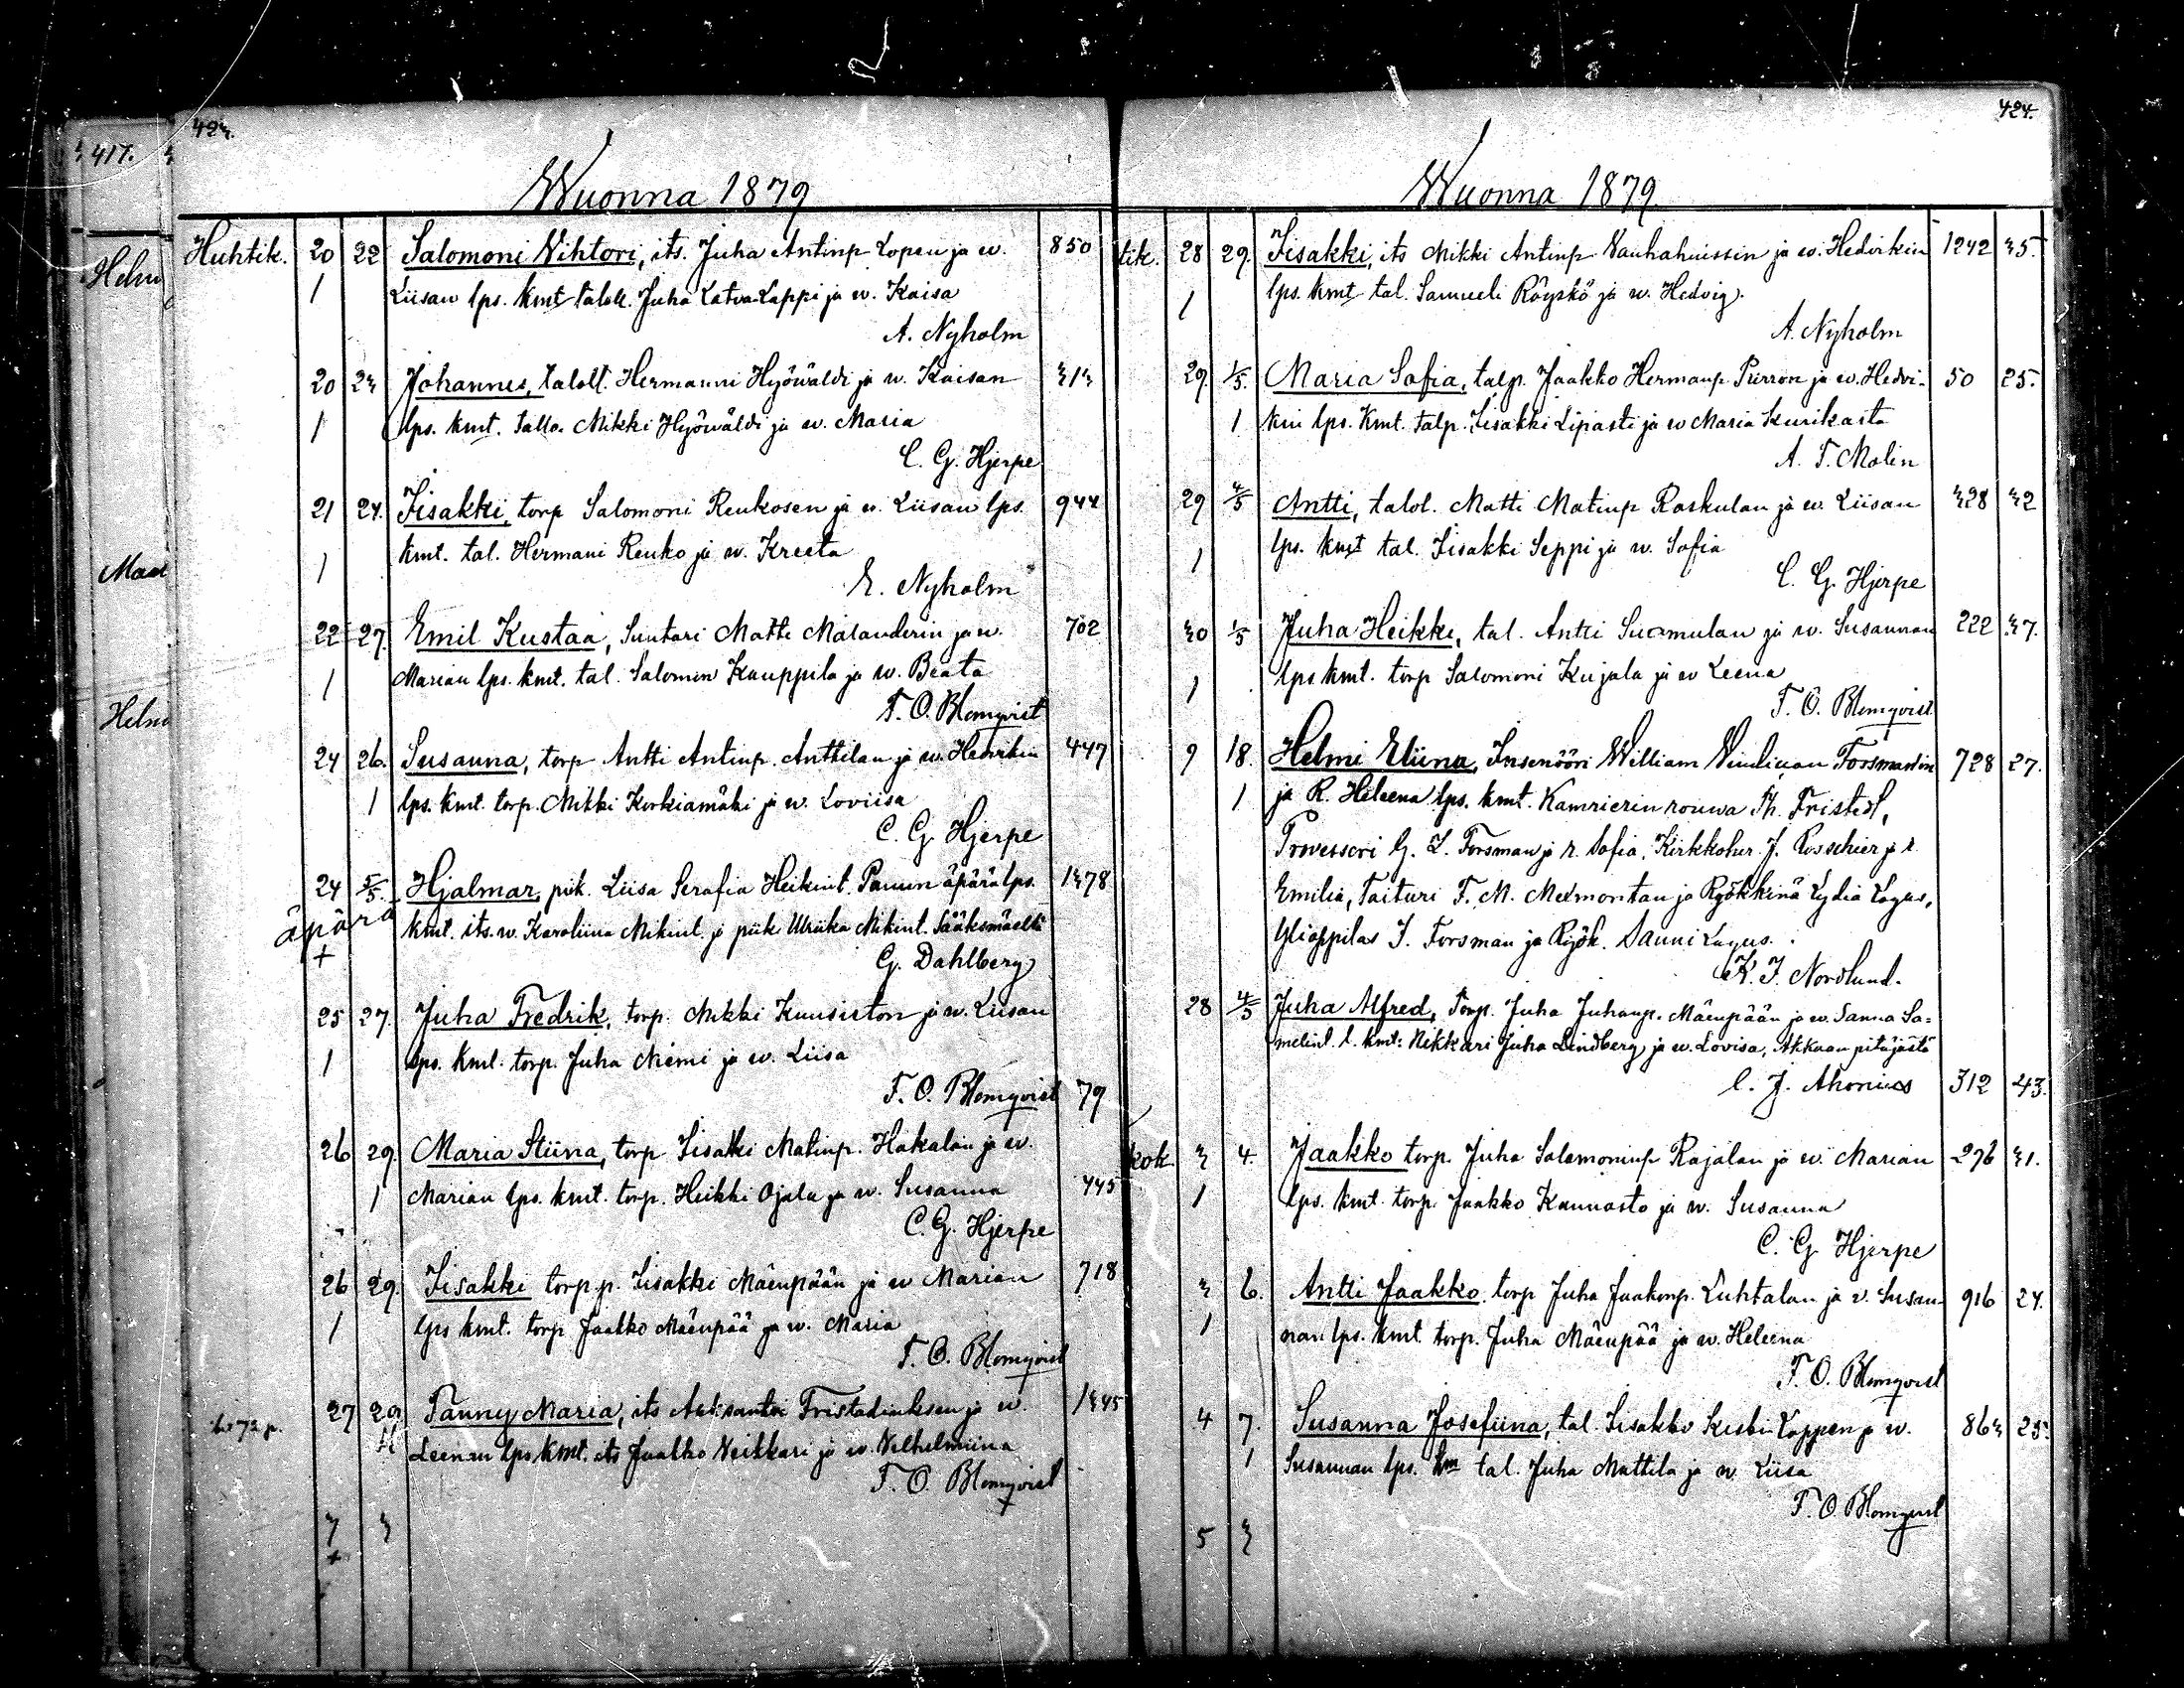 417.
Helm
Maal
Helm
423.
Wuonna 1879
Huhtik. 20 22 Salomoni Vihtori, its. Juha Antinp Lopen ja w. 850
1 Liisan lps. kmt taloll. Juha Latva-Lappi ja w. Kaisa
A. Nyholm
20 23 Johannes, talolt. Hermanni Hyöwäldi ja w. Kaisan 313
1 lps. kmt. tallo. Mikki Hyöwäldi ja w. Maria
C. G. Hjerpe
21 24. Iisakki, torp Salomoni Renkosen ja w. Liisan lps. 944
1 kmt. tal. Hermani Renko ja w. Kreeta
E. Nyholm
22 27. Emil Kustaa, Suutari Matti Malanderin ja w. 702
1 Marian lps. kmt. tal. Salomon Kauppila ja w. Beata
F. O. Blomqvist
24 26. Susanna, torp Antti Antinp. Anttilan ja w. Hedvikin 447
1 lps. kmt. torp. Mikki Korkiamäki ja w. Loviisa
C. G. Hjerpe
24 5/5. Hjalmar, piik. Liisa Serafia Heikint. Panun äpärä lps. 1378
äpärä kmt. its. w. Karoliina Mikint. ja piik. Ulriika Mikint. Sääksmäeltä
+ G. Dahlberg
25 27. Juha Fredrik, torp. Mikki Kuusiston ja w. Liisan
1 lps. kmt. torp. Juha Niemi ja w. Liisa
F. O. Blomqvist 79
26 29. Maria Stiina, torp Iisakki Matinp. Hakalan ja w.
1 Marian lps. kmt. torp. Heikki Ojala ja w. Susanna 445
C. G. Hjerpe
26 29. Iisakki torp. p. Iisakki Mäenpään ja w Marian 718
1 lps kmt. torp Jaakko Mäenpää ja w. Maria
F. O. Blomqvist
27 29 Fanny Maria, its ja w. 1345
Leenan lps. kmt. its Jaakko Veikkari ja w. Vilhelmiina
F. O. Blomqvist
7 3
+
424.
Wuonna 1879
tik. 28 29. Iisakki, its Mikki Antinp Vanhahuissin ja w. Hedvikin 1242 35.
1 lps. kmt tal. Samueli Röyskö ja w. Hedvig.
A. Nyholm
29. 1/5. Maria Sofia, talp. Jaakko Hermanp. Pirron ja w. Hedvi- 50 25.
1 kin lps. kmt. talp. Iisakki Lipasti ja w Maria Kurikasta
A. F. Malin
29 4/5 Antti, talol. Matti Matinp Raskulan ja w. Liisan 328 32
1 lps. kmt tal. Iisakki Seppi ja w. Sofia
C. G. Hjerpe
30 1/5 Juha Heikki, tal. Antti Suomulan ja w. Susannan 222 37.
1 lps kmt. torp Salomoni Kujala ja w Leena
F. O. Blomqvist
9 18. Helmi Eliina, Insenööri William Forsmanin 728 27.
1 ja R. Heleena lps. kmt. Kamrierin rouwa Th. Fristedt,
Provessori G. Z. Forsman ja r. Sofia, Kirkkoher. J. Rosschier ja r.
Emilia, Taituri F. M. Melmontan ja Ryökkinä Lydia Lagus,
Ylioppilas J. Forsman ja Ryök. Sanni Lagus.
K. J. Nordlund.
28 4/5 Juha Alfred, Torp. Juha Juhanp. Mäenpään ja w. Sanna Sa=
melint. l. kmt: Nikkari Juha Lindberg ja w. Lovisa, Akkaan pitäjästä
C. J. Ahonius 312 43.
kok 3 4. Jaakko torp. Juha Salomoninp Rajalan ja w. Marian 276 31.
1 lps. kmt. torp. Jaakko Kannasto ja w. Susanna
C. G. Hjerpe
3 6. Antti Jaakko torp Juha Jaakonp. Luhtalan ja v. Susan- 916 24.
1 nan lps. kmt. torp. Juha Mäenpää ja w. Heleena
F. O. Blomqvist
4 7. Susanna Josefiina, tal. Iisakki Keski-Lappen ja w. 863 25.
1 Susannan lps. km tal. Juha Mattila ja w. Liisa
F. O. Blomqvist
5 3